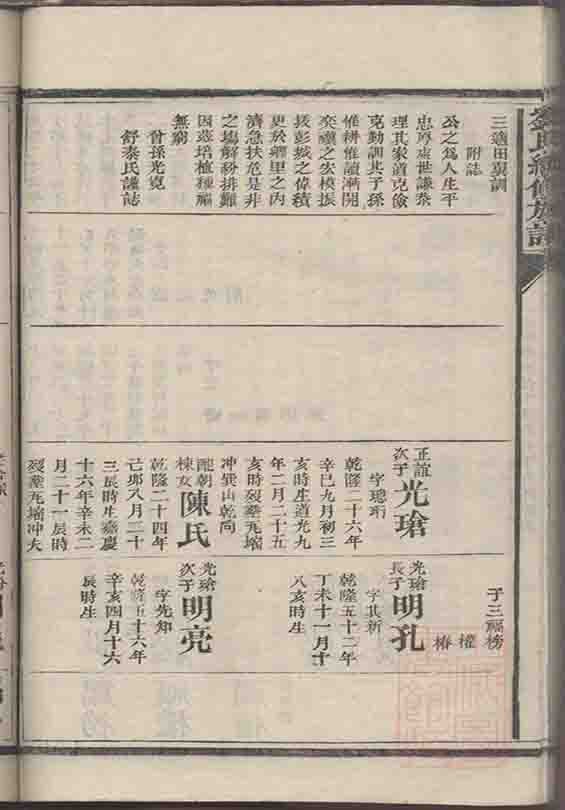 劉氏續修族譜
三適田襄訓
附誌
公之為人生平
忠厚處世謙恭
理其家道克儉
克勤訓其子孫
惟耕惟讀漸開
奕禩之宏模振
拔彭城之偉績
更於鄉里之內
濟急扶危是非
之場解紛排難
因茲培植種福
無窮
曾孫光寬
舒泰氏謹誌
正誼
次子
光瑲
字璁珩
乾隆二十六年
辛巳九月初三
亥時生道光九
年二月二十五
亥時歿葬瓦塥
冲巽山乾向
配朝
棟女
陳氏
乾隆二十四年
己卯八月二十
三辰時生嘉慶
十六年辛未二
月二十一辰時
歿葬瓦塥冲夫
子三福榜
權
椿
光瑲
長子
明孔
字其新
乾隆五十二年
丁未十一月十
八亥時生
光瑲
次子
明亮
字先知
乾隆五十六年
辛亥四月十六
辰時生